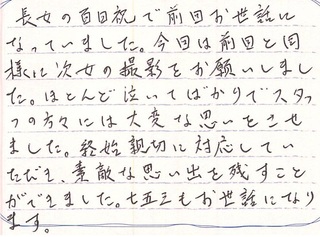 長女の百日祝で前回お世話に
なっていました。今回は前回と同
様に次女の撮影をお願いしまし
た。ほとんど泣いてばかりでスタッ
フの方々には大変な思いをさせ
ました。終始親切に対応してい
ただき、素敵な思い出を残すこと
ができました。七五三もお世話になり
ます。